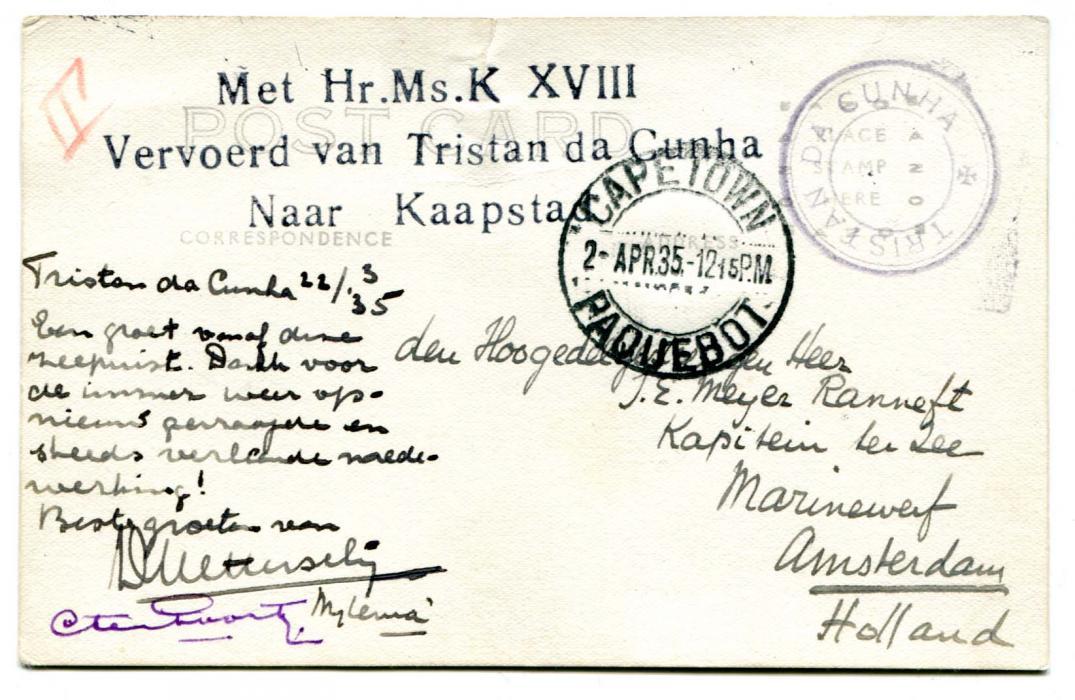 Met Hr.Ms.K XVIII
POST CARD
Vervoerd van Tristan da Cunha
Naar Kaapstad
TRISTAN DA CUNHA
PLACE
STAMP
HERE
CAPETOWN
2-APR.35.-1215P.M.
PAQUEBOT
CORRESPONDENCE
ADDRESS
Tristan da Cunha 22/3 35
Een groet vanaf deze
Dank voor
de immer weer op-
nieuw gevraagde en
steeds verleende mede-
werking!
Beste groeten van
den Hoogedelgestrengen Heer
J.E. Meyer Ranneft
Kapitein ter Zee
Marinewerf
Amsterdam
Holland